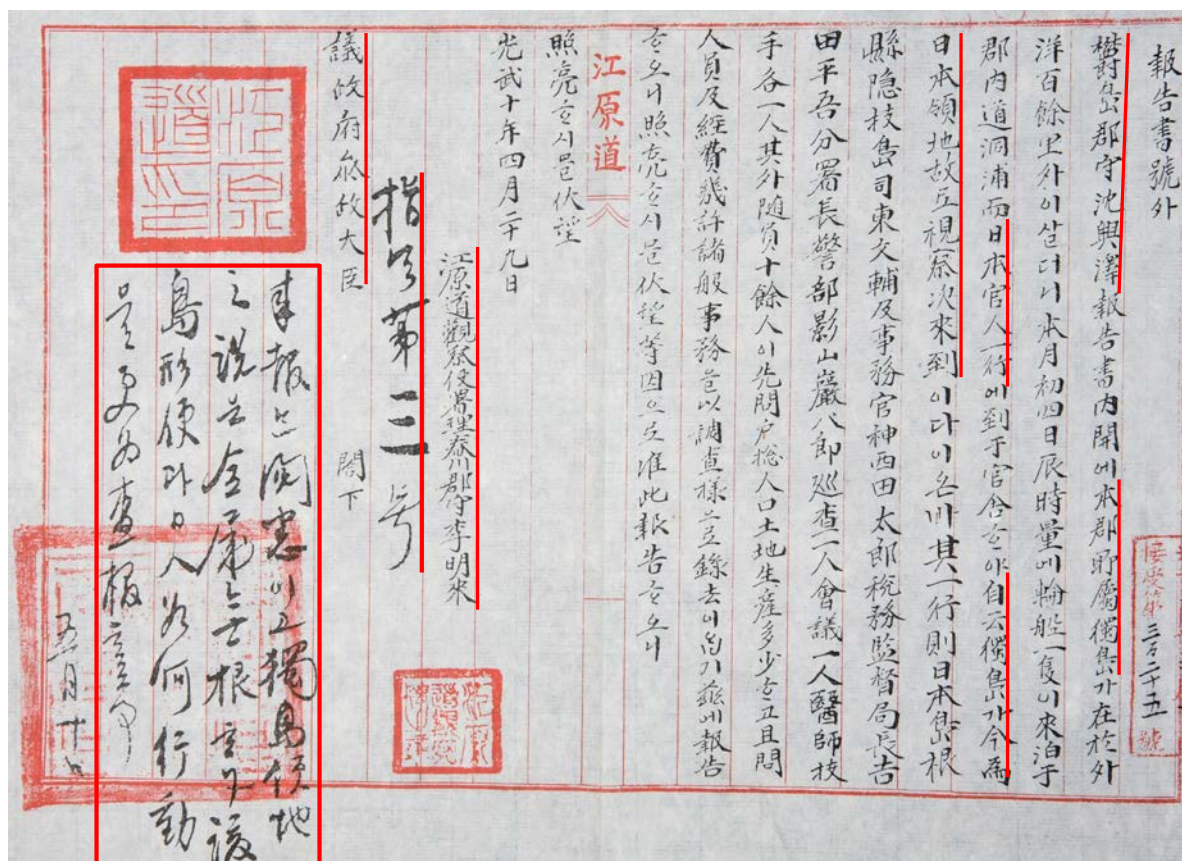 報告書號外
鬱島郡守沈興澤報告書內開에本郡所屬獨島가在於外
洋百餘里外이살더니本月初四日辰時量에輪船一隻이來泊于
郡內道洞浦而日本官人一行에到于官舍ᄒᆞ야自云獨島가今爲
日本領地故로視察次來到이다이온바其一行則日本島根
縣隱岐島司東文輔及事務官神西田太郎稅務監督局長吉
田平吾分署長警部影山巖八郎巡查一人會議一人醫師技
手各一人其外随員十餘人이先問戶摠人口土地生產多少ᄒᆞ고且問
人員及經費幾許諸般事務를以調查樣으로錄去이ᄋᆞᆸ기玆에報告
ᄒᆞ오니照亮ᄒᆞ시믈伏望等因으로准此報告ᄒᆞ오니
照亮ᄒᆞ시믈伏望
光武十年四月二十九日
江原道觀察使署理春川郡守李明來
指令第三号
議政府參政大臣 閣下
來報는閱悉이고獨島領地
之說은全屬無根하나該
島形便과日人如何行動
을更爲查報할事
五月十日
接受第三百二十五號
江原道